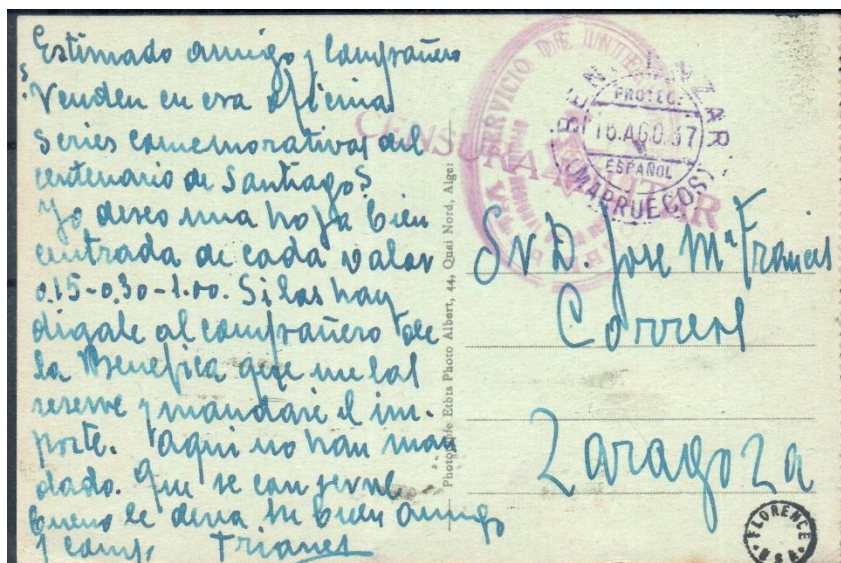 Estimado amigo y Compañero
¿Venden en esa oficina
series comemorativas del
centenario de Santiago?
Yo deseo una hoja bien
centrada de cada valor
0.15-0.30-1.00. Si las hay
digale al compañero de
la Benefica que me las
reserve y mandaré el im-
porte. Aqui no han man
dado. Que se conserve
bueno le desea su buen amigo
y comp.
Photo Albert, 44, Quai Nord, Alger
CENSURA MILITAR
SERVICIO DE
PROTEC.
18.AGO.37
ESPAÑOL
(MARRUECOS)
Sr. D. Jose Mª Frances
Correos
Zaragoza
FLORENCE